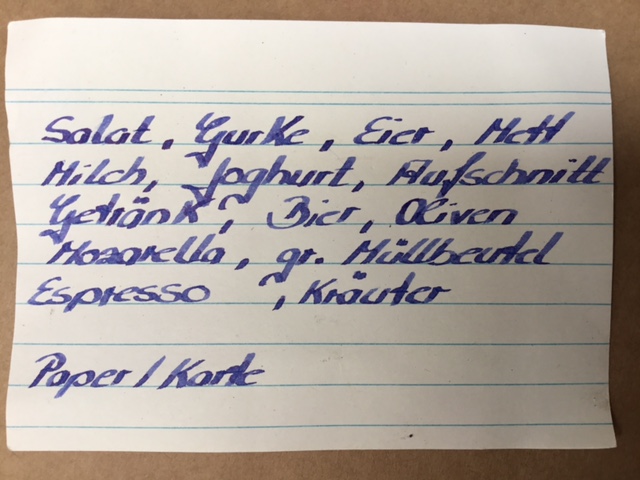 Salat, Gurke, Eier, Mett
Milch, Joghurt, Aufschnitt
Getränk, Bier, Oliven
Mozarella, gr. Müllbeutel
Espresso, Kräuter
Paper / Karte